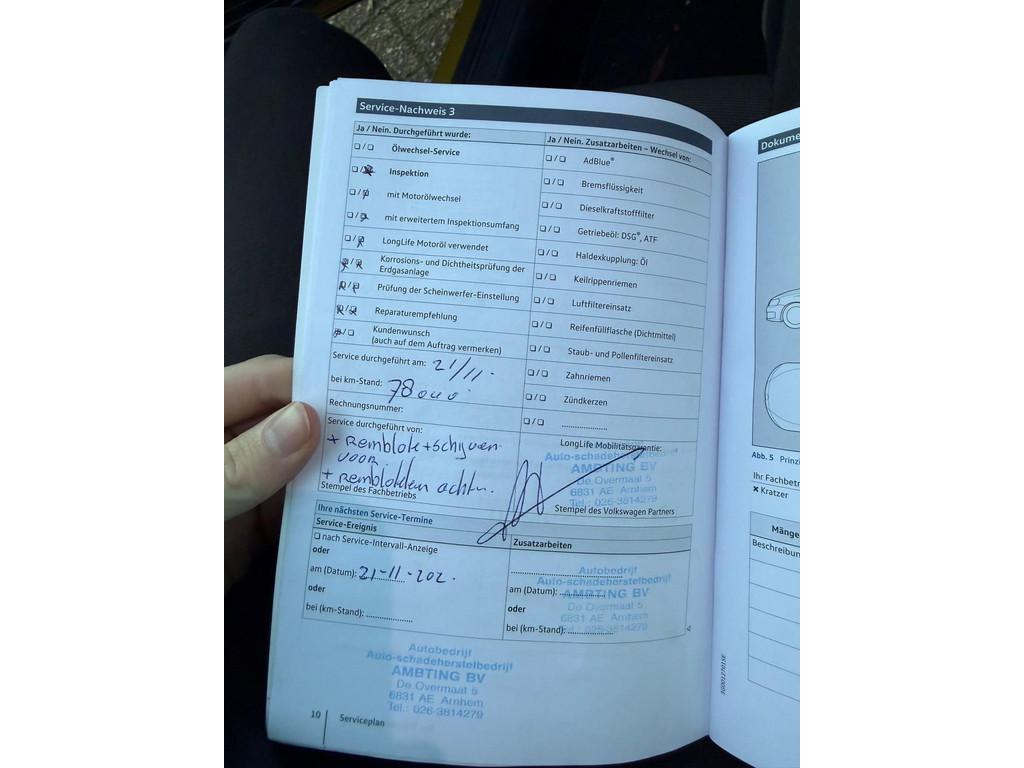 Service-Nachweis 3
Ja / Nein. Durchgeführt wurde:
❏ / ❏ Ölwechsel-Service
Inspektion
mit Motorölwechsel
mit erweitertem Inspektionsumfang
LongLife Motoröl verwendet
Korrosions- und Dichtheitsprüfung der
Erdgasanlage
Prüfung der Scheinwerfer-Einstellung
Reparaturempfehlung
Kundenwunsch
(auch auf dem Auftrag vermerken)
Service durchgeführt am: 21/11.
bei km-Stand: 78000
Rechnungsnummer:
Service durchgeführt von:
+ Remblokke + schijven
voor
+ Remblokken achter.
Stempel des Fachbetriebs
Ja / Nein. Zusatzarbeiten – Wechsel von:
❏ / ❏ AdBlue®
❏ / ❏ Bremsflüssigkeit
❏ / ❏ Dieselkraftstofffilter
❏ / ❏ Getriebeöl: DSG®, ATF
❏ / ❏ Haldexkupplung: Öl
❏ / ❏ Keilrippenriemen
❏ / ❏ Luftfiltereinsatz
❏ / ❏ Reifenfüllflasche (Dichtmittel)
❏ / ❏ Staub- und Pollenfiltereinsatz
❏ / ❏ Zahnriemen
❏ / ❏ Zündkerzen
❏ / ❏ ....................
LongLife Mobilitätsgarantie:
Auto-schadeherstelbedrijf
AMBTING BV
De Overmaat 5
6831 AE Arnhem
Tel.: 026-3814279
Stempel des Volkswagen Partners
Ihre nächsten Service-Termine
Service-Ereignis
❏ nach Service-Intervall-Anzeige
oder
am (Datum): 21-11-202.
oder
bei (km-Stand): ....................
Zusatzarbeiten
Autobedrijf
Auto-schadeherstelbedrijf
am (Datum): AMBTING BV
De Overmaat 5
oder 6831 AE Arnhem
bei (km-Stand): Tel.: 026-3814279
Autobedrijf
Auto-schadeherstelbedrijf
AMBTING BV
De Overmaat 5
6831 AE Arnhem
Tel.: 026-3814279
10 Serviceplan
Dokume
Abb. 5 Prinzi
Ihr Fachbetr
× Kratzer
Mänge
Beschreibun